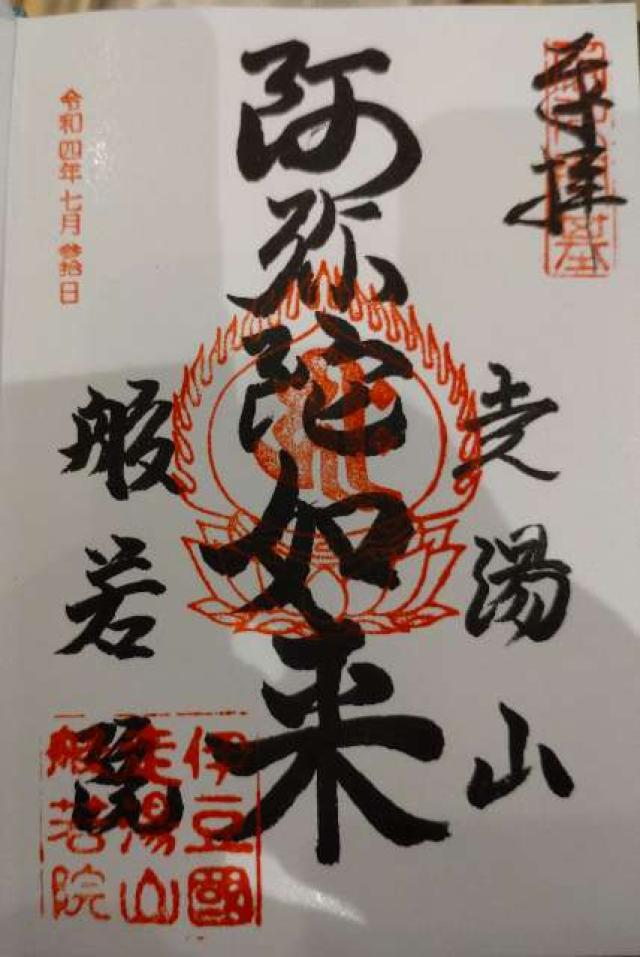 奉拝
走湯山
阿弥陀如来
般若院
令和四年七月参拾日
伊豆國
走湯山
般若院